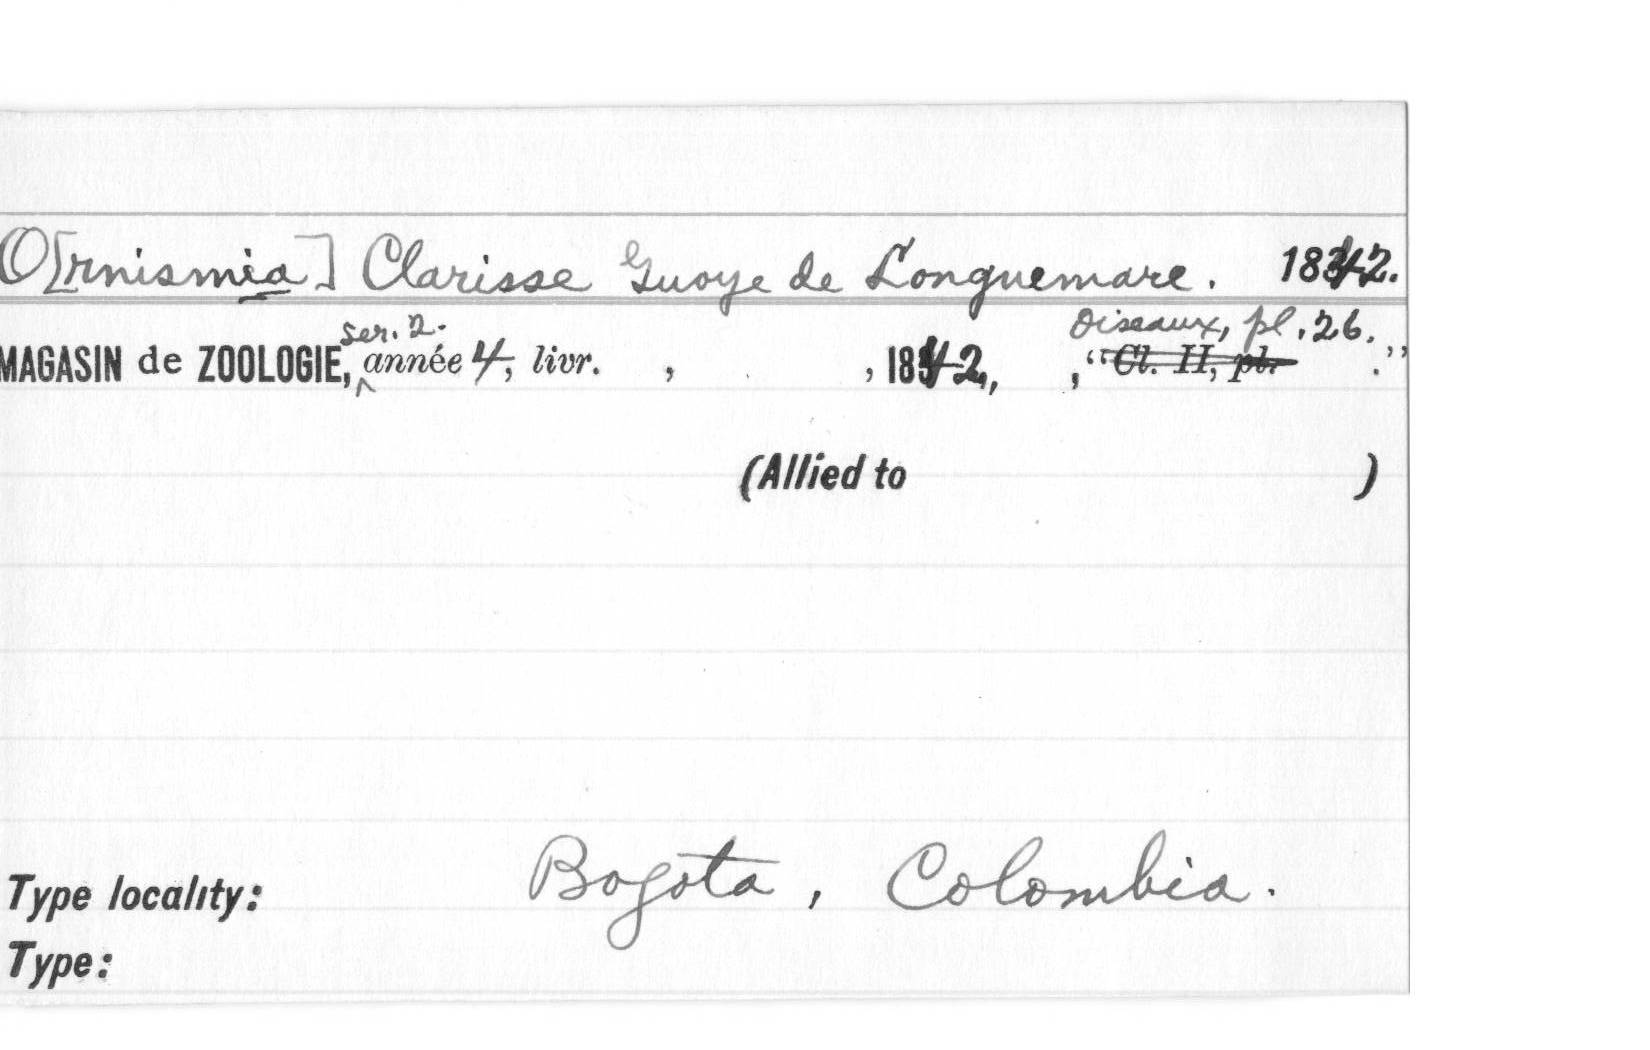 O[rnismia] Clarisse Guoye de Longuemare. 1842.
ser. 2. Oiseaux, pl. 26.
MAGASIN de ZOOLOGIE, année 4, livr. , , 1842, , "Cl. II, pl. ."
(Allied to )
Bogota, Colombia.
Type locality:
Type: